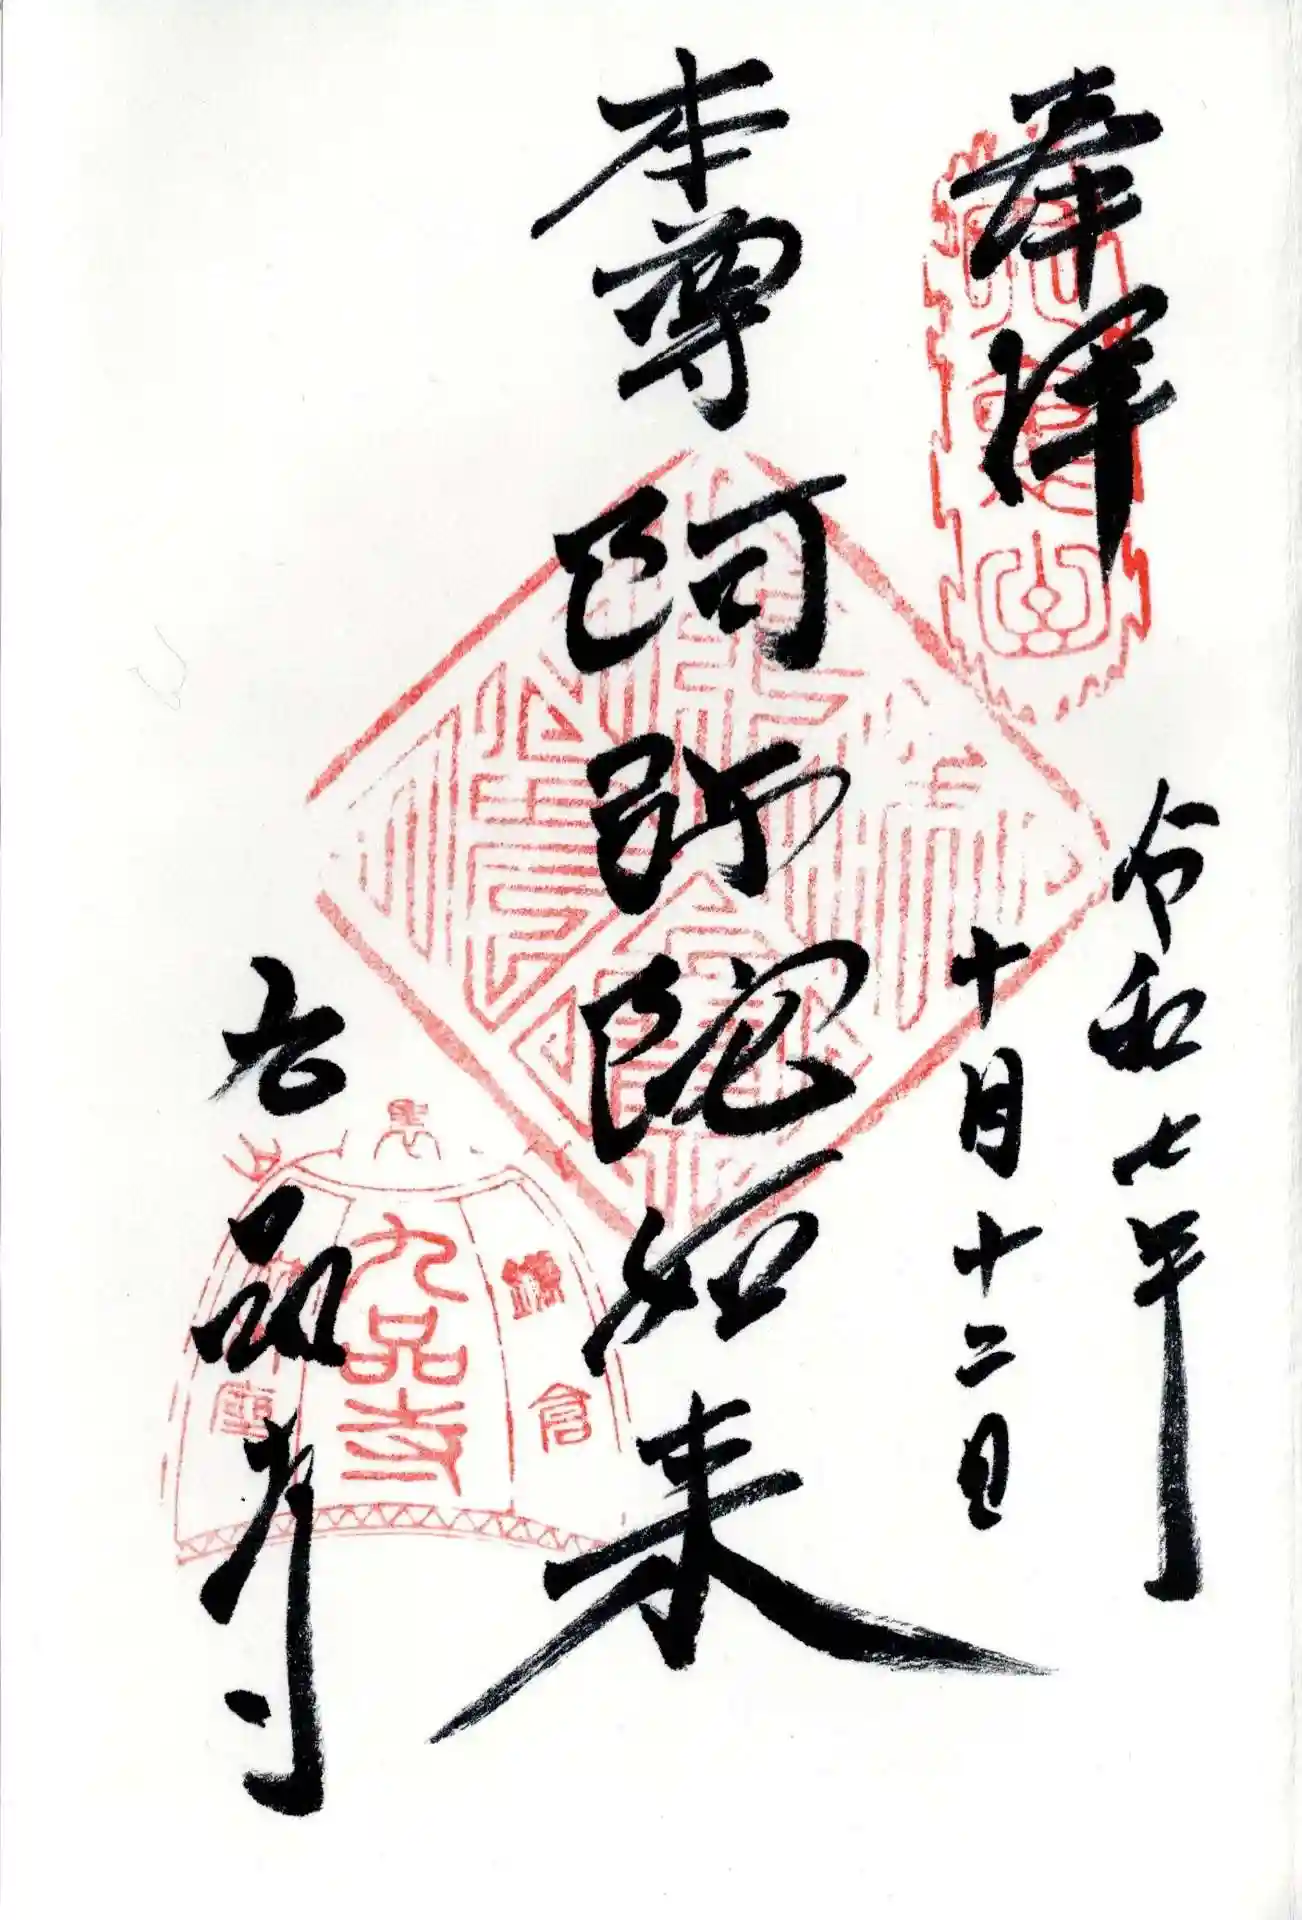 奉拝
令和七年
十月十二日
本尊阿弥陀如来
九品寺
九品寺
鎌倉